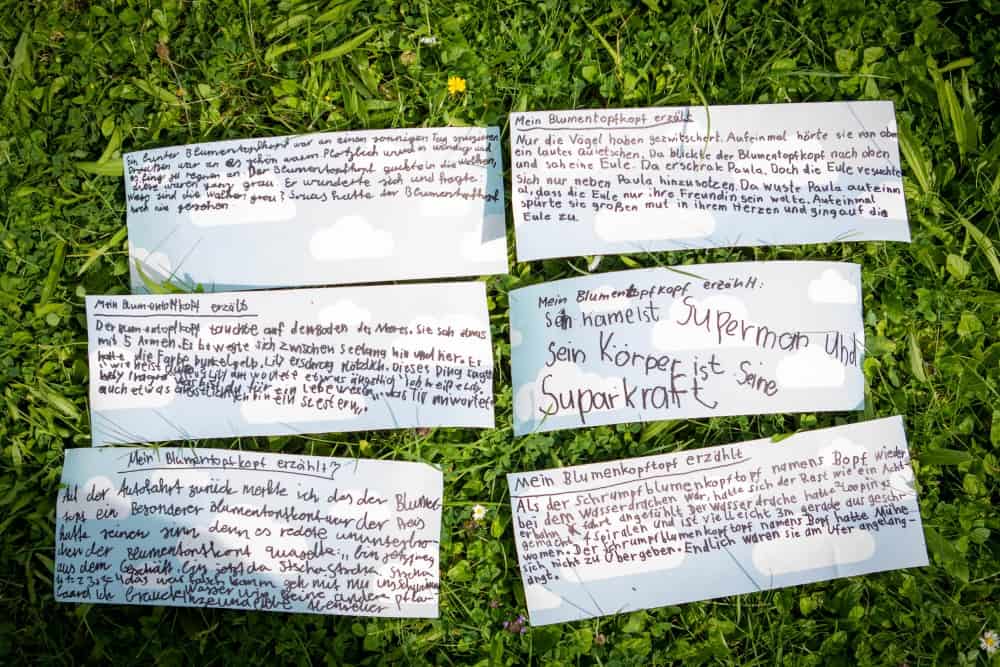 Ein bunter Blumentopfkopf war an einen sonnigen Tag spazieren
Draußen war an es schön warm Plötzlich wurde es windig und
es fing zu regnen an. Der Blumentopfkopf guckte in die wolken,
diese waren ganz grau. Er wunderte sich und fragte:
Wieso sind die wolken grau? Sowas hatte der Blumentopfkopf
noch nie gesehen
Mein Blumentoftkopf erzält
Der Blumentopfkopf tauchte auf den Boden des Meres. Sie sah etwas
mit 5 Armen. Es bewegte sich zwischen Seetang hin und hier. Es
hatte die Farbe Dunkelgelb. Lily erschrag Plötzlich. Dieses Ding sagte
wie heist
auch etwas ein Seestern.
Mein Blumentopfkopf erzählt:
Auf der Autofahrt zurück merkte ich das der Blumen-
topf ein Besonderer Blumentopfkopf war der Preis
hatte seinen sinn denn es redete ununterbro-
chen der Blumentopfkopf
aus dem Geschäft.
das was falsch
Mein Blumentopfkopf erzält
Nur die Vögel haben gezwitschert. Aufeinmal hörte sie von oben
ein lautes Quietschen. Da blickte der Blumentopfkopf nach oben
und sah eine Eule. Da erschrak Paula. Doch die Eule versuchte
sich nur neben Paula hinzusetzen. Da wuste Paula aufeinm
al, dass die Eule nur ihre Freundin sein wolte. Aufeinmal
spürte sie großen mut in ihrem Herzen und ging auf die
Eule zu.
Mein Blumentopfkopf erzählt:
Sein name ist Superman und
sein Körper ist Seine
Suparkraft
Mein Blumenkopftopf erzählt
Als der Schrumpfblumenkopftopf namens Bopf wieder
bei dem Wasserdrachen war, hatte sich der Rest wie ein Acht-
erbahn fahrt angefühlt. Der Wasserdrache hatte 2 Loopings
gemacht, 4 Spiralen und ist vielleicht 3m gerade aus geschw-
ommen. Der Schrumpfblumenkopftopf namens Bopf hatte Mühe
sich nicht zu Übergeben. Endlich waren sie am Ufer angelang-
angt.